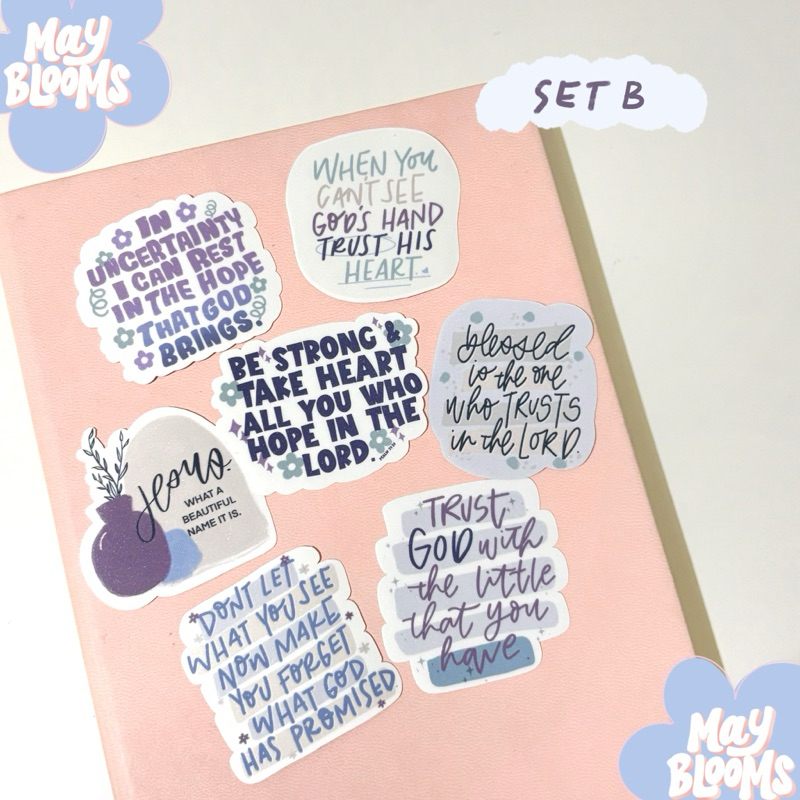 May
BLOOMS
SET B
WHEN YOU
CAN'T SEE
GOD'S HAND
TRUST HIS
HEART.
IN
UNCERTAINTY
I CAN REST
IN THE HOPE
THAT GOD
BRINGS.
BE STRONG &
TAKE HEART
ALL YOU WHO
HOPE IN THE
LORD.
blessed
is the one
who TRUSTS
in the LORD
Jesus.
WHAT A
BEAUTIFUL
NAME IT IS.
TRUST
GOD with
the little
that you
have
DON'T LET
WHAT YOU SEE
NOW MAKE
YOU FORGET
WHAT GOD
HAS PROMISED
May
BLOOMS